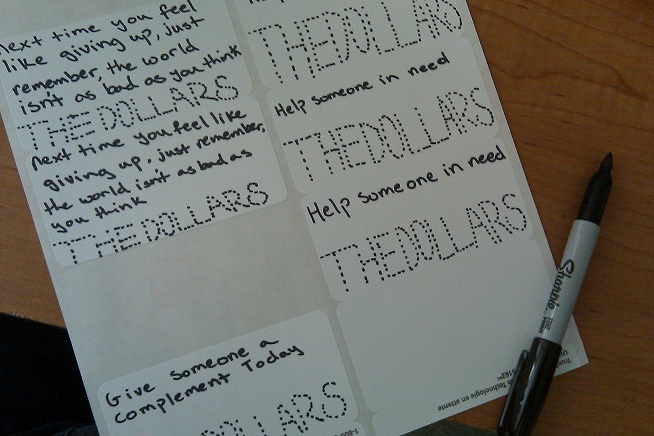 next time you feel
like giving up, just
remember, the world
isn't as bad as you think
THEDOLLARS
next time you feel like
giving up, just remember,
the world isn't as bad as
you think
THEDOLLARS
Give someone a
complement Today
DOLLARS
THEDOLLARS
Help someone in need
THEDOLLARS
Help someone in need
THEDOLLARS
Technologie en attente
Sharpie